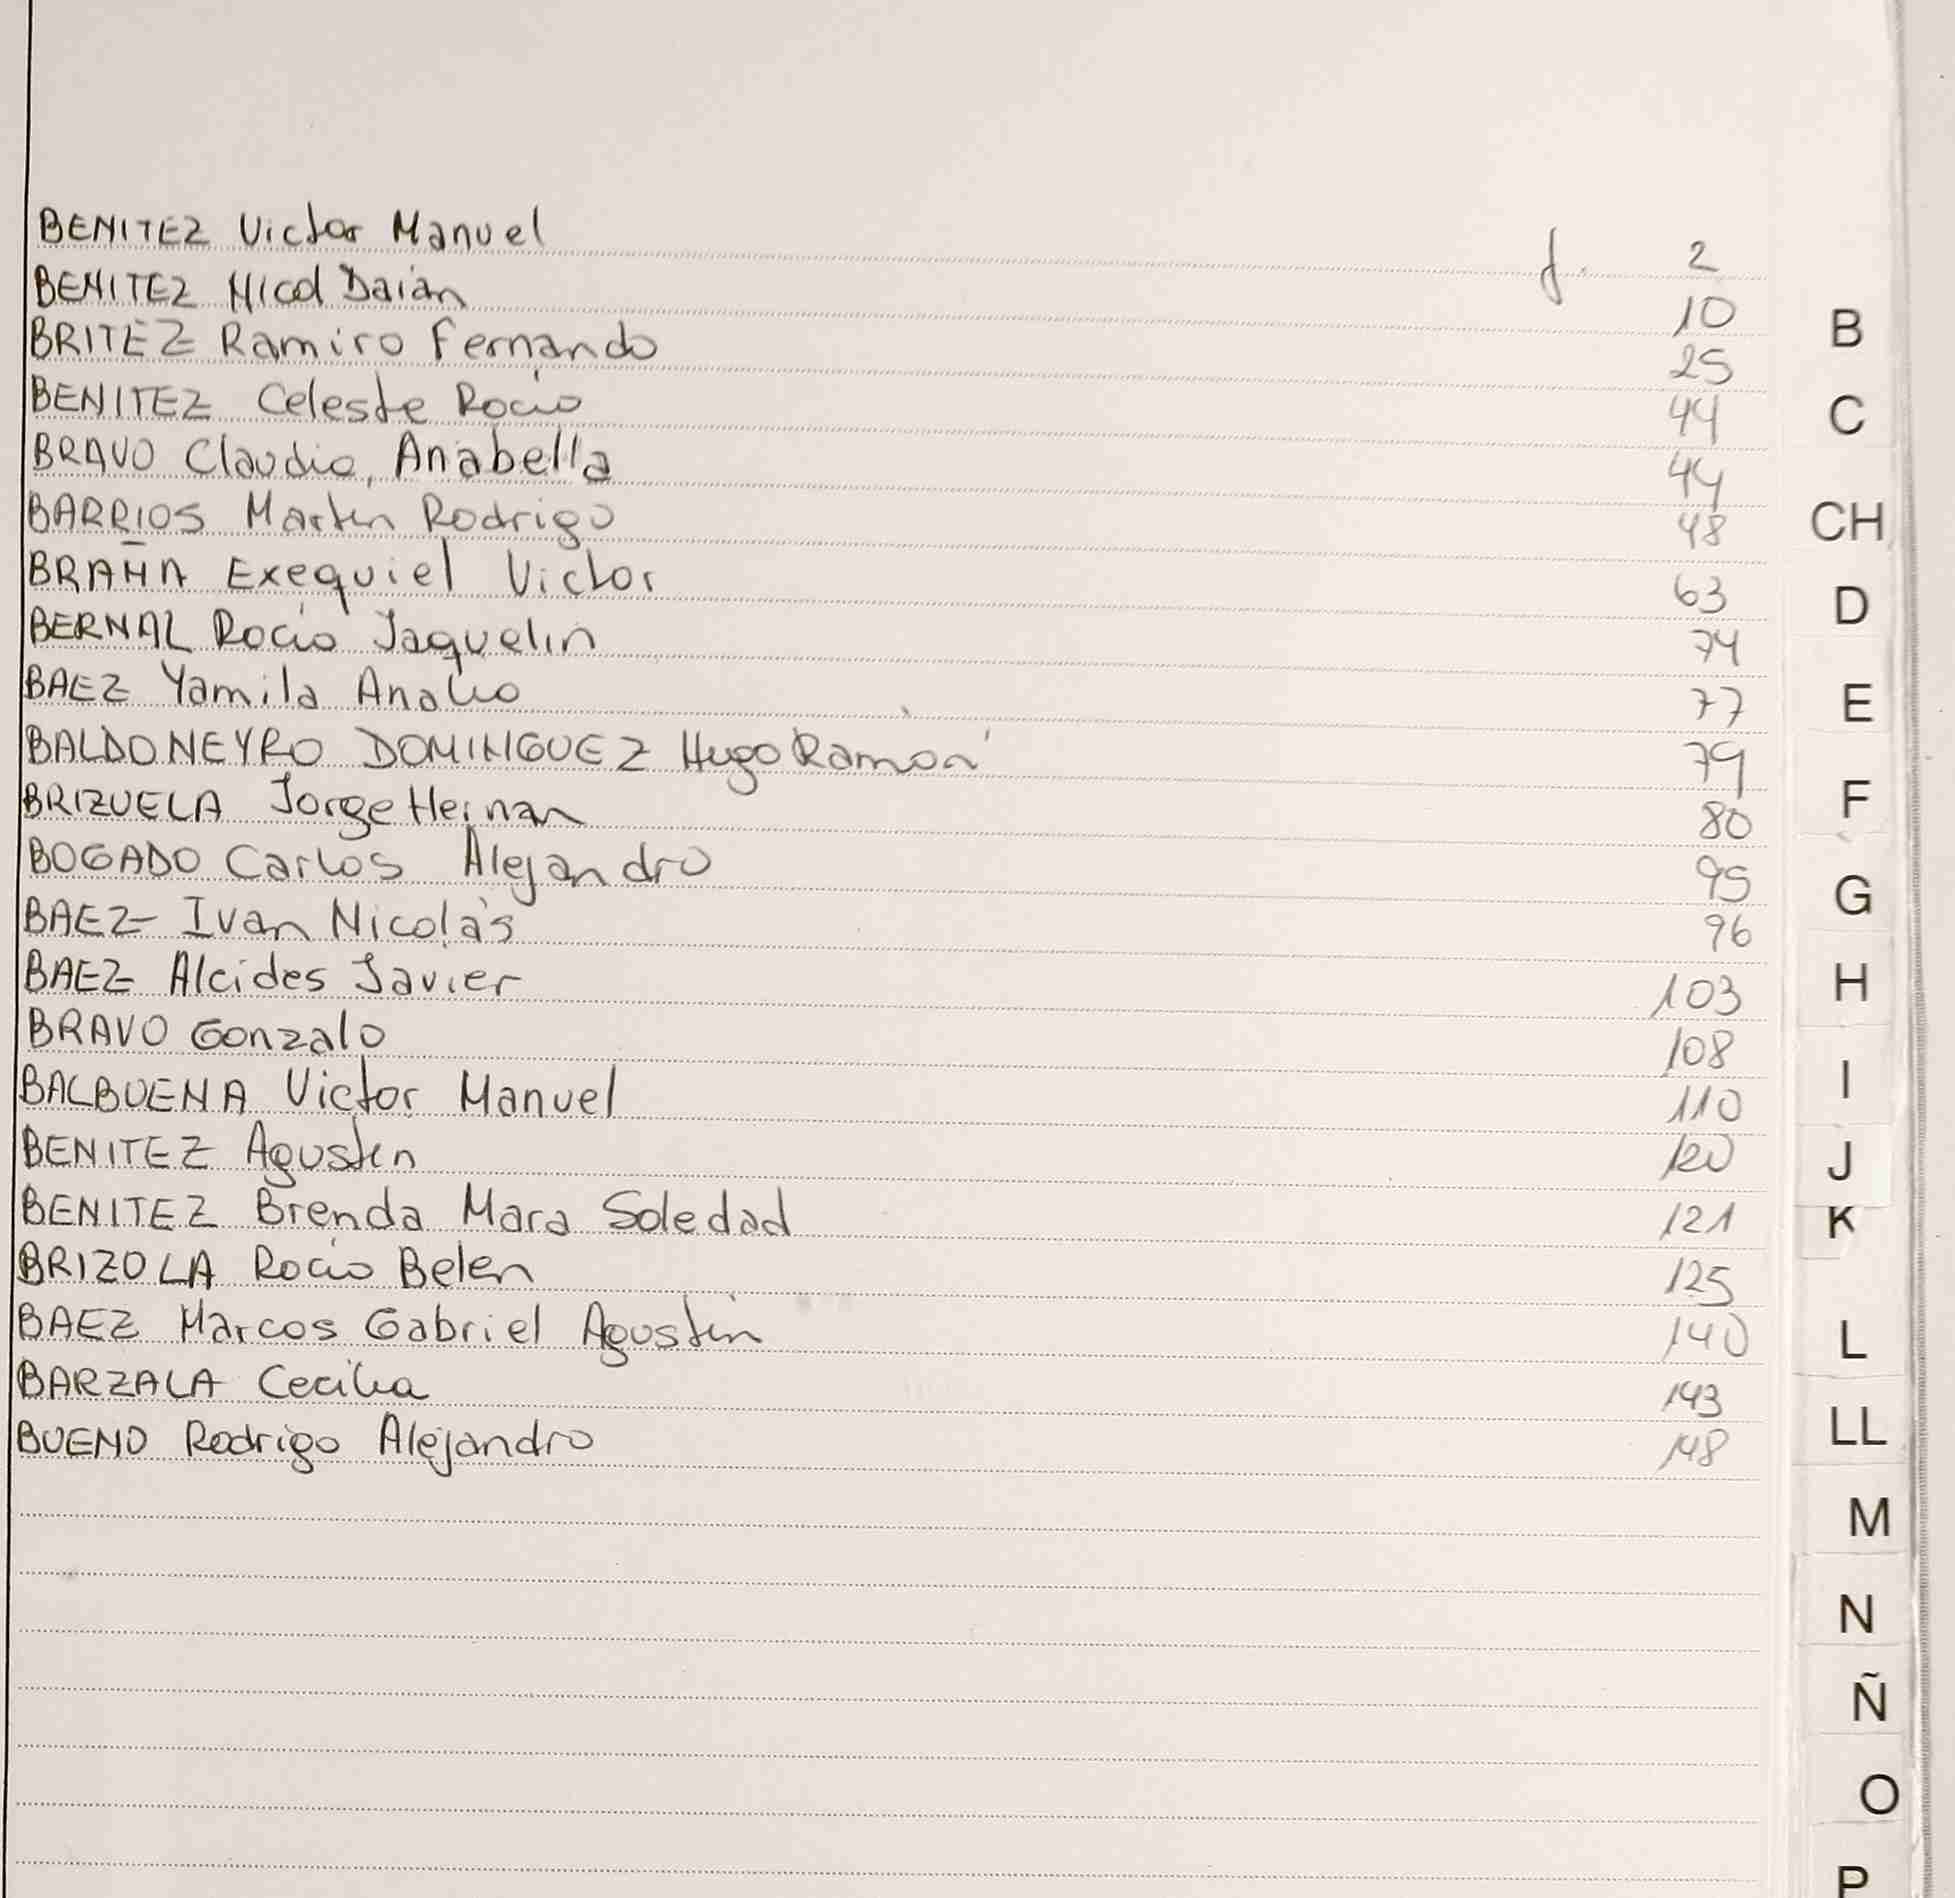 BENITEZ Victor Manuel f. 2
BENITEZ Nicol Daian 10
BRITEZ Ramiro Fernando 25
BENITEZ Celeste Rocío 44
BRAVO Claudio, Anabella 44
BARRIOS Martin Rodrigo 48
BRAÑA Exequiel Victor 63
BERNAL Rocío Jaquelin 74
BAEZ Yamila Analia 77
BALDONEYRO DOMINGUEZ Hugo Ramón 79
BRIZUELA Jorge Hernan 80
BOGADO Carlos Alejandro 95
BAEZ Ivan Nicolás 96
BAEZ Alcides Javier 103
BRAVO Gonzalo 108
BALBUENA Victor Manuel 110
BENITEZ Agustin 120
BENITEZ Brenda Mara Soledad 121
BRIZOLA Rocío Belen 125
BAEZ Marcos Gabriel Agustín 140
BARZALA Cecilia 143
BUENO Rodrigo Alejandro 148
B
C
CH
D
E
F
G
H
I
J
K
L
LL
M
N
Ñ
O
P